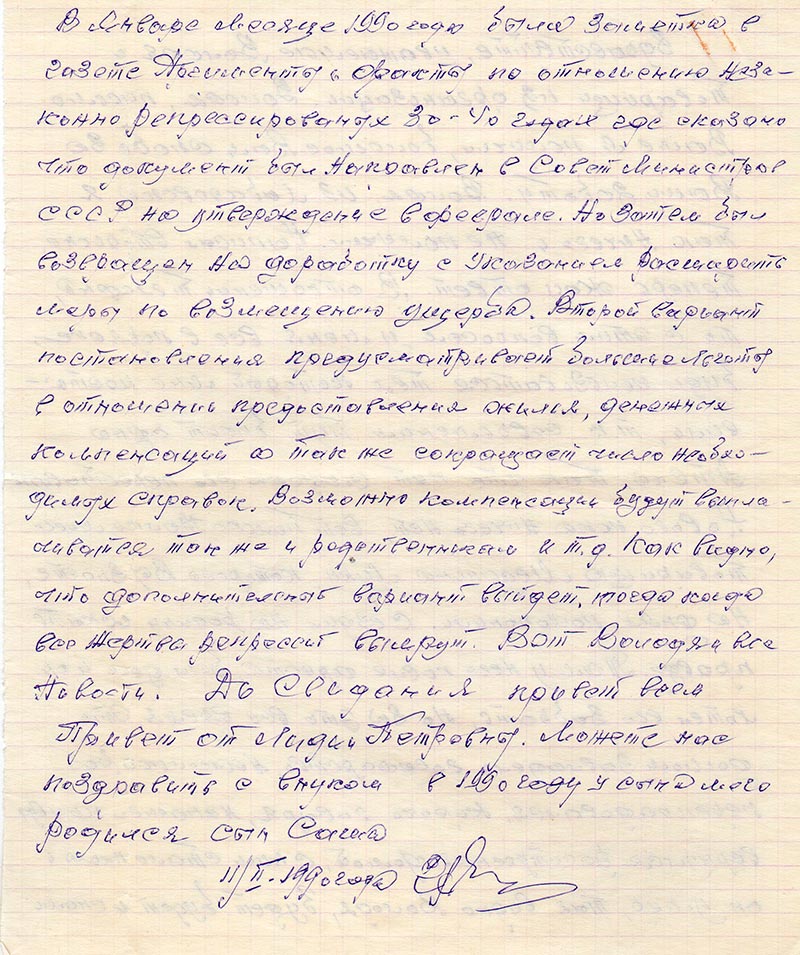 В Январе месяце 1990 году была заметка в
газете Документы и факты по отношению неза-
конно репрессированых 30-40 годах где сказано
что документ был направлен в Совет Министров
СССР на утверждение в феврале. Но затем был
возвращен на доработку с указанием расширить
меры по возмещению ущерба. Второй вариант
постановления предусматривает большие льготы
в отношении предоставления жилья, денежных
компенсаций а так же сокращает число необхо-
димых справок. Возможно компенсации будут выпла-
чиватся так же и родственникам и т.д. Как видно,
что дополнительный вариант выйдет, тогда когда
все жертвы репрессий вымрут. Вот Володя и все
Новости. До Свидания привет всем
Привет от Лидии Петровны. Можете нас
поздравить с внуком в 1990 году у сына моего
родился сын Саша
11/II-1990 года